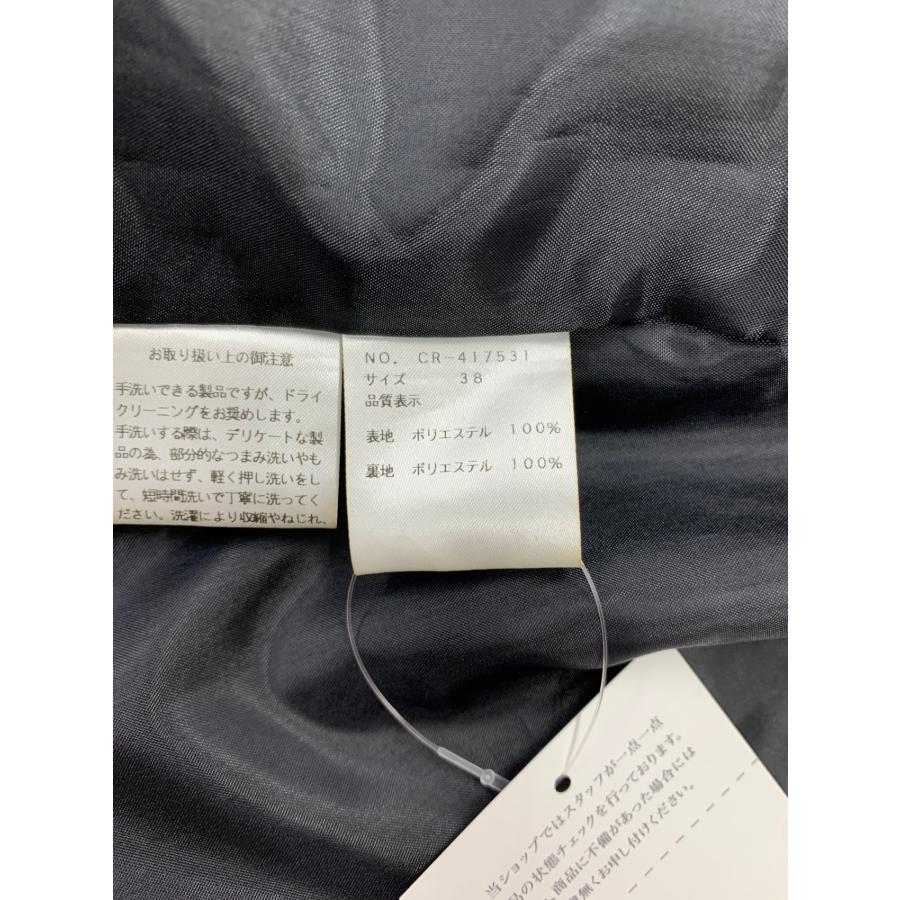 お取り扱い上の御注意
手洗いできる製品ですが、ドライ
クリーニングをお奨めします。
手洗いする際は、デリケートな製
品の為、部分的なつまみ洗いやも
み洗いはせず、軽く押し洗いをし
て、短時間洗いで丁寧に洗ってく
ださい。洗濯により収縮やねじれ、
NO. CR-417531
サイズ 38
品質表示
表地 ポリエステル 100%
裏地 ポリエステル 100%
当ショップではスタッフが一点一点
品の状態チェックを行っております。
商品に不備があった場合には
無くお申し付けください。